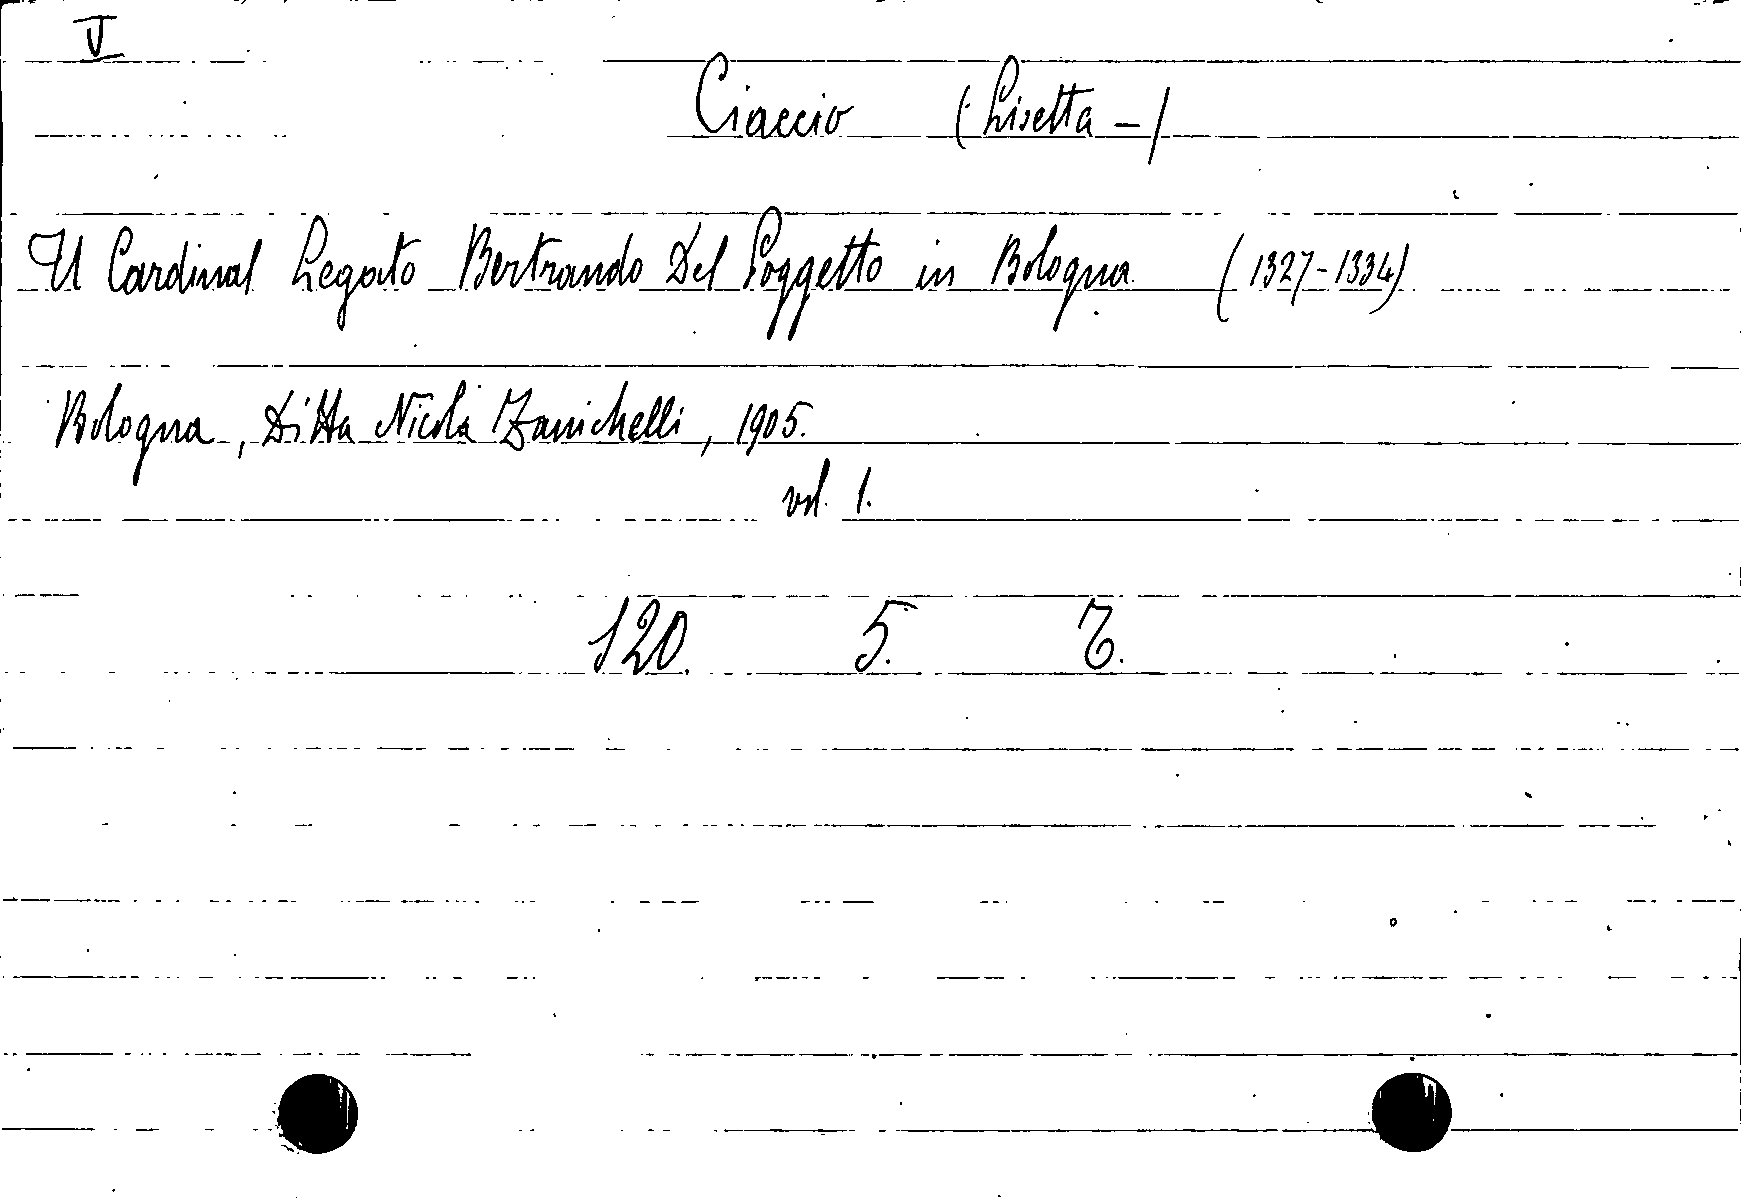 V
Ciaccio (Lisetta -)
Il Cardinal Legato Bertrando Del Poggetto in Bologna (1327-1334)
Bologna, Ditta Nicola Zanichelli, 1905.
vol. 1.
120. 5. 7.